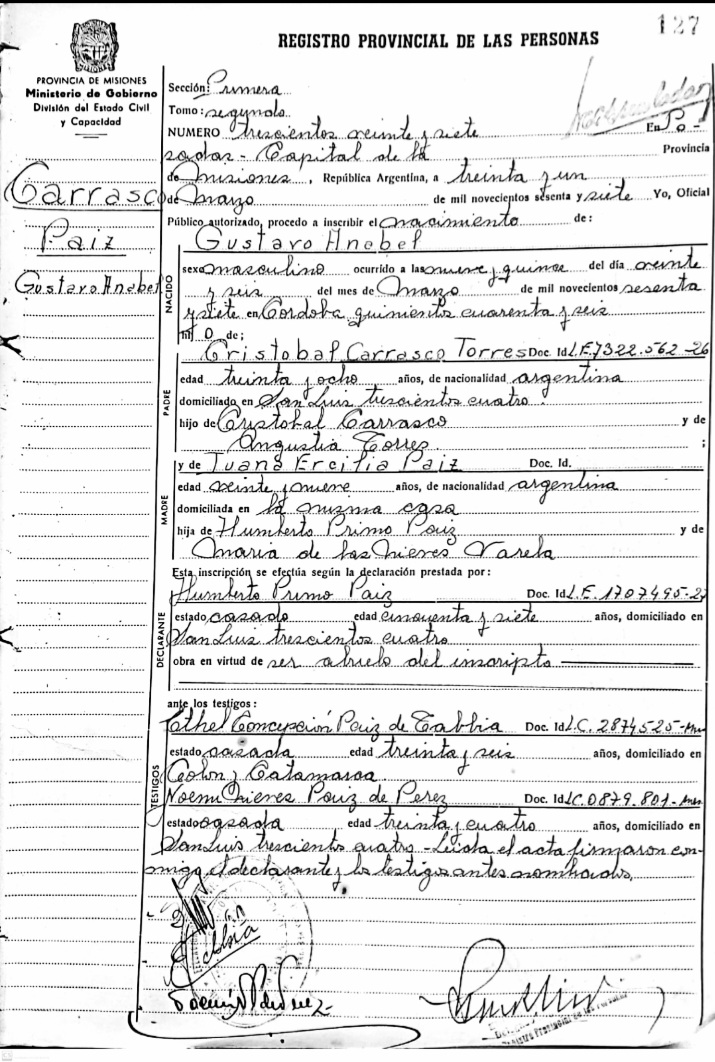 127
REGISTRO PROVINCIAL DE LAS PERSONAS
PROVINCIA DE MISIONES
Ministerio de Gobierno
División del Estado Civil
y Capacidad
Carrasco
Paiz
Gustavo Anebel
Sección: Primera
Tomo: segundo
NUMERO trescientos veinte y siete En Po-
sadas - Capital de la Provincia
de Misiones, República Argentina, a treinta y un
de Marzo de mil novecientos sesenta y siete Yo, Oficial
Público autorizado, procedo a inscribir el nacimiento de:
Gustavo Anebel
NACIDO
sexo masculino ocurrido a las nueve y quince del día veinte
y seis del mes de Marzo de mil novecientos sesenta
y siete en Cordoba quinientos cuarenta y seis
hij o de;
Cristobal Carrasco Torres Doc. Id. L.E. 7322.562-26
PADRE
edad treinta y ocho años, de nacionalidad argentina
domiciliado en San Luis trescientos cuatro.
hijo de Cristobal Carrasco y de
Angustia Torres ;
y de Juana Ercilia Paiz Doc. Id.
MADRE
edad veinte y nueve años, de nacionalidad argentina
domiciliada en la misma casa
hija de Humberto Primo Paiz y de
Maria de las Nieves Varela
Esta inscripción se efectúa según la declaración prestada por:
DECLARANTE
Humberto Primo Paiz Doc. Id. L.E. 1707495-
estado casado edad cincuenta y siete años, domiciliado en
San Luis trescientos cuatro
obra en virtud de ser abuelo del inscripto
ante los testigos:
TESTIGOS
Ethel Concepción Paiz de Tabbia Doc. Id. L.C. 2874525-Mnes
estado casada edad treinta y seis años, domiciliado en
Colon y Catamarca
Noemi Nieves Paiz de Perez Doc. Id. L.C. 0879.801-Mnes
estado casada edad treinta y cuatro años, domiciliado en
San Luis trescientos cuatro - Leida el acta firmaron con-
migo, el declarante y los testigos antes nombrados